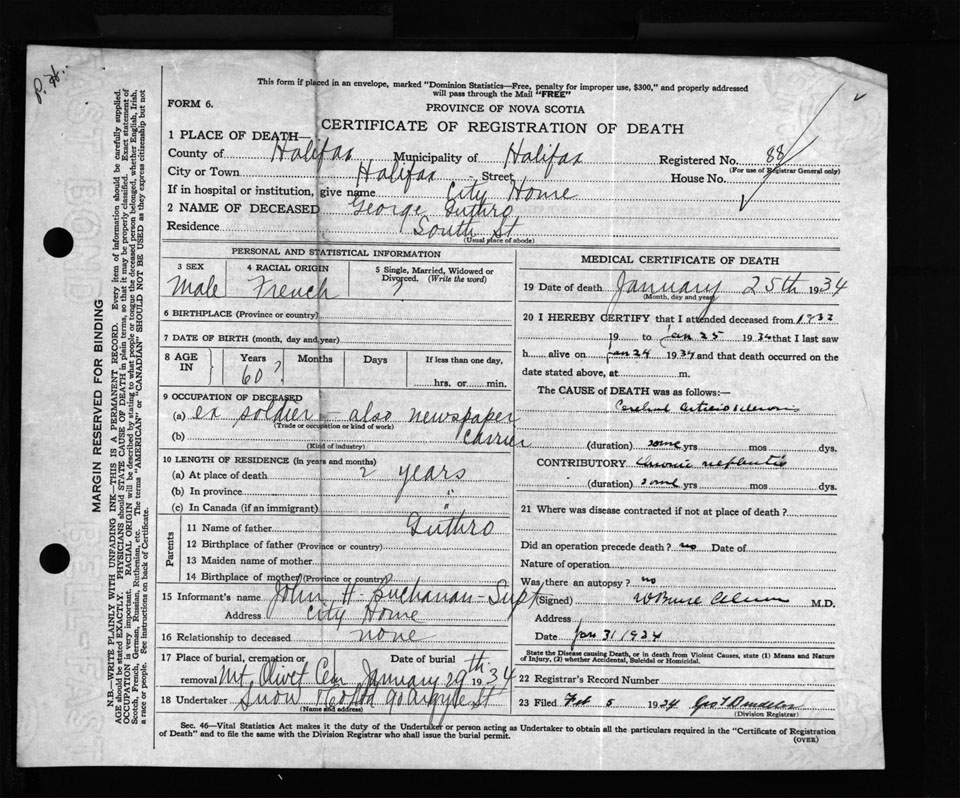 P. H.
This form if placed in an envelope, marked "Dominion Statistics—Free, penalty for improper use, $300," and properly addressed
will pass through the Mail "FREE"
FORM 6.
PROVINCE OF NOVA SCOTIA
CERTIFICATE OF REGISTRATION OF DEATH
1 PLACE OF DEATH—
County of Halifax Municipality of Halifax Registered No. 88
(For use of Registrar General only)
City or Town Halifax Street House No.
If in hospital or institution, give name City Home
2 NAME OF DECEASED George Guthro
Residence South St
(Usual place of abode)
PERSONAL AND STATISTICAL INFORMATION
3 SEX
Male
4 RACIAL ORIGIN
French
5 Single, Married, Widowed or Divorced. (Write the word)
?
6 BIRTHPLACE (Province or County)
7 DATE OF BIRTH (month, day and year)
8 AGE IN
Years Months Days If less than one day,
60? hrs. or min.
9 OCCUPATION OF DECEASED
(a) ex soldier — also newspaper
(Trade or occupation or kind of work)
(b) carrier
(Kind of industry)
10 LENGTH OF RESIDENCE (in years and months)
(a) At place of death 2 years
(b) In province "
(c) In Canada (if an immigrant) "
Parents
11 Name of father Guthro
12 Birthplace of father (Province or county)
13 Maiden name of mother
14 Birthplace of mother (Province or county)
15 Informant's name John H. Buchanan - Supt
Address City Home
16 Relationship to deceased none
17 Place of burial, cremation or Date of burial
removal Mt. Olivet Cem January 29th 1934
18 Undertaker Snow & Co Ltd 90 Argyle St
(Name and address)
MEDICAL CERTIFICATE OF DEATH
19 Date of death January 25th 1934
(Month, day and year)
20 I HEREBY CERTIFY that I attended deceased from 1932
19 to Jan 25 1934 that I last saw
h alive on Jan 24 1934 and that death occurred on the
date stated above, at m.
The CAUSE of DEATH was as follows:—
Cerebral Arteriosclerosis
(duration) some yrs mos dys.
CONTRIBUTORY Chronic nephritis
(duration) some yrs mos dys.
21 Where was disease contracted if not at place of death?
Did an operation precede death? no Date of
Nature of operation
Was there an autopsy? no
(Signed) W Bruce M.D.
Address
Date Jan 31 1934
State the Disease causing Death, or in death from Violent Causes, state (1) Means and Nature
of Injury, (2) whether Accidental, Suicidal or Homicidal.
22 Registrar's Record Number
23 Filed Feb 5 1934 Geo
(Division Registrar)
Sec. 46—Vital Statistics Act makes it the duty of the Undertaker or person acting as Undertaker to obtain all the particulars required in the "Certificate of Registration
of Death" and to file the same with the Division Registrar who shall issue the burial permit.
(OVER)
MARGIN RESERVED FOR BINDING
N.B.—WRITE PLAINLY WITH UNFADING INK—THIS IS A PERMANENT RECORD. Every item of information should be carefully supplied.
AGE should be stated EXACTLY. PHYSICIANS should STATE CAUSE OF DEATH in plain terms, so that it may be properly classified. Exact statement of
OCCUPATION is very important. RACIAL ORIGIN will be described by stating to what people or tongue the deceased person belonged, whether English, Irish,
Scotch, French, German, Russian, Ruthenian, etc. The terms "AMERICAN" or "CANADIAN" SHOULD NOT BE USED as they express citizenship but not
a race or people. See instructions on back of Certificate.